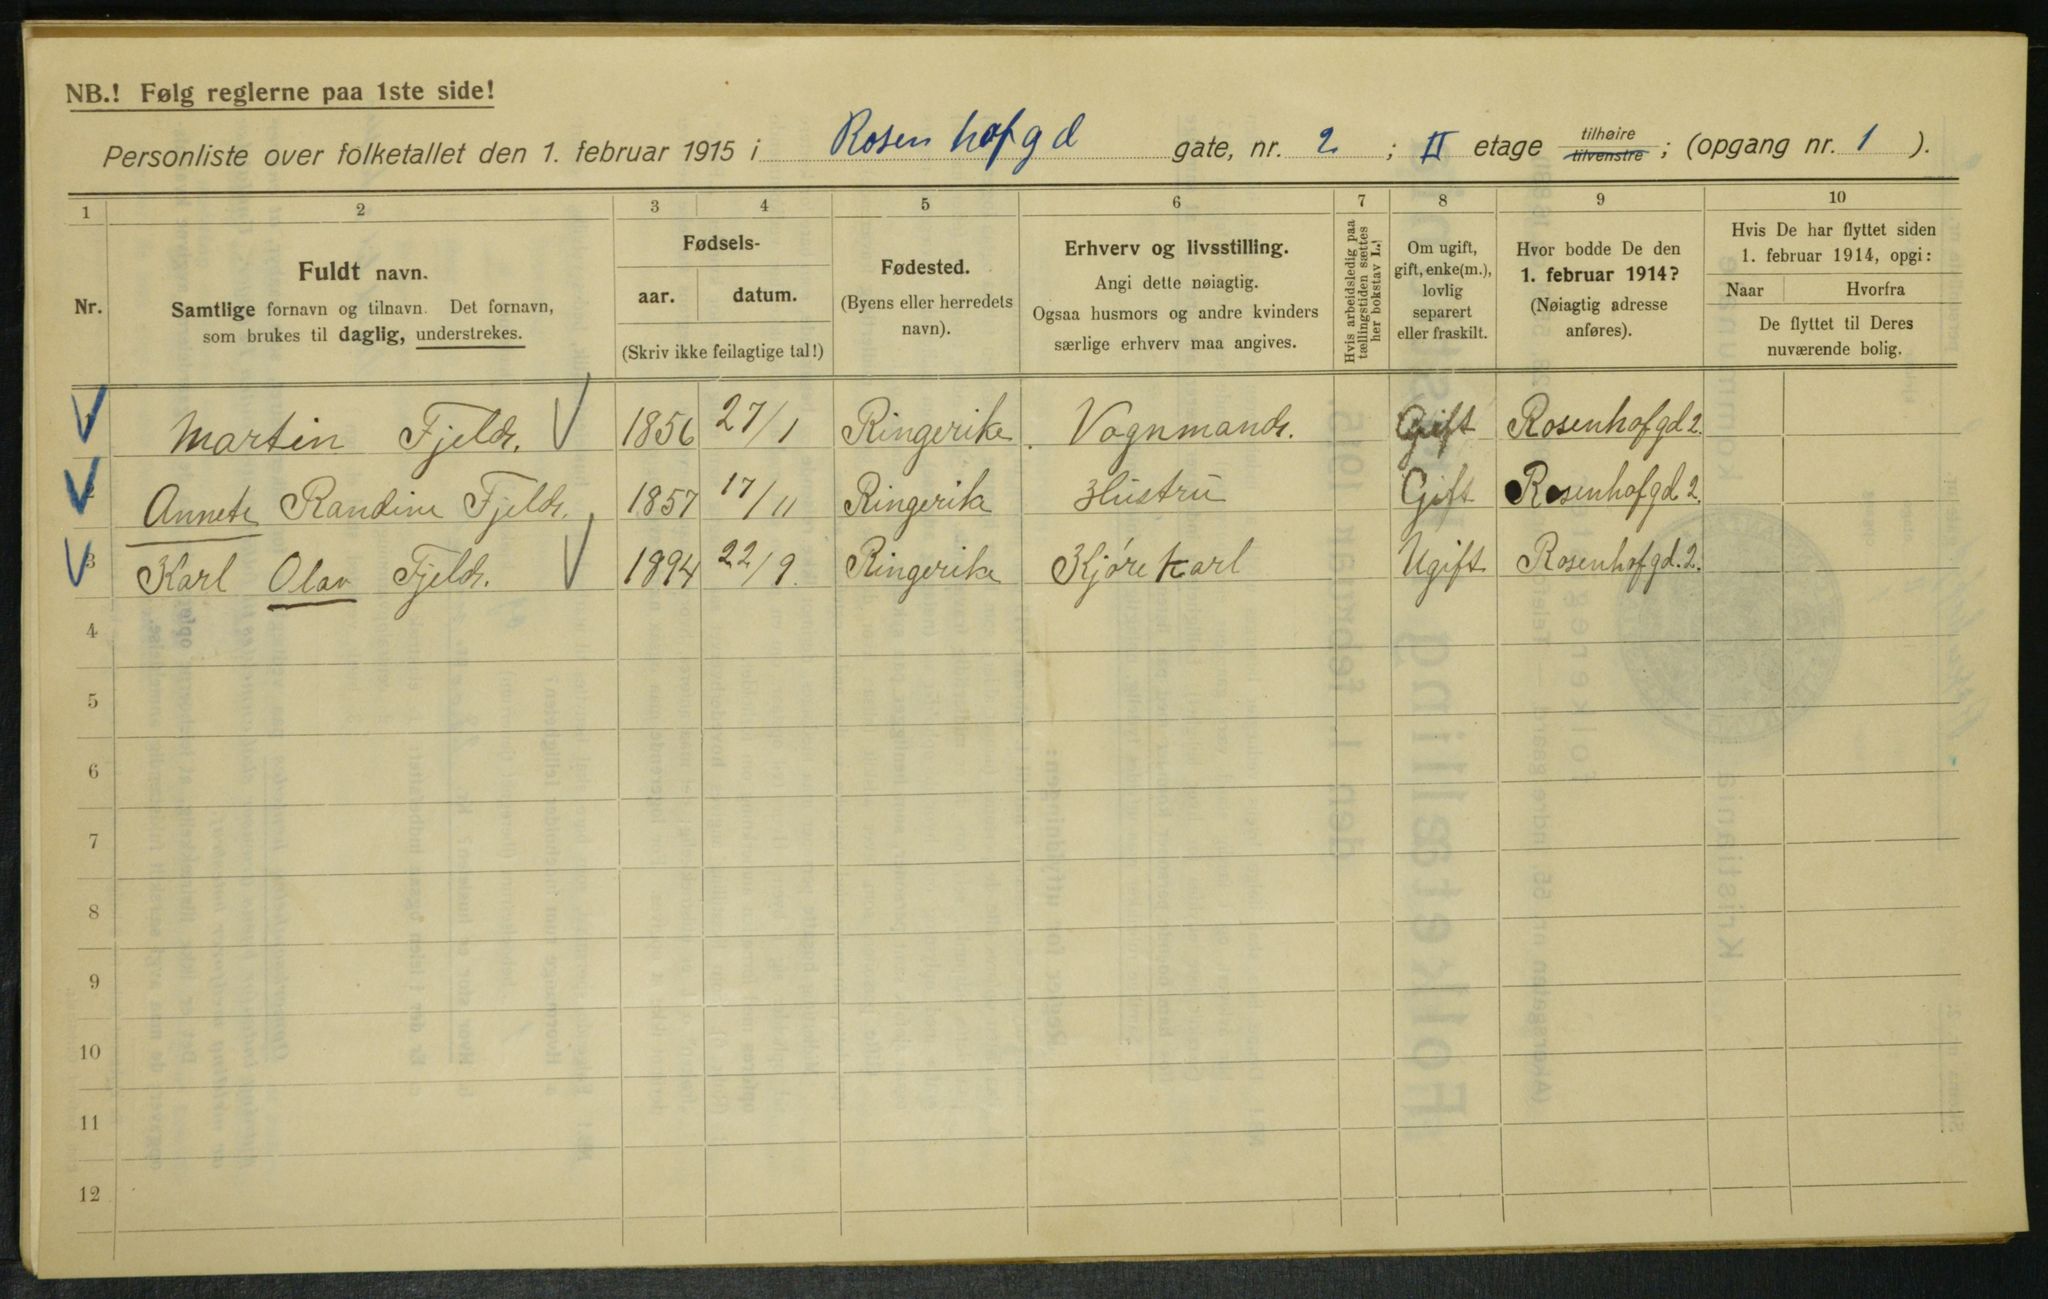 NB.! Følg reglerne paa 1ste side!
Personliste over folketallet den 1. februar 1915 i Rosenhofgd gate, nr. 2 ; II etage tilhøire tilvenstre ; (opgang nr. 1 ).
1 2 3 4 5 6 7 8 9 10
Nr.
Fuldt navn.
Samtlige fornavn og tilnavn. Det fornavn,
som brukes til daglig, understrekes.
Fødsels-
aar. datum.
(Skriv ikke feilagtige tal!)
Fødested.
(Byens eller herredets
navn).
Erhverv og livsstilling.
Angi dette nøiagtig.
Ogsaa husmors og andre kvinders
særlige erhverv maa angives.
Hvis arbeidsledig paa
tællingstiden sættes
her bokstav L.!
Om ugift,
gift, enke(m.),
lovlig
separert
eller fraskilt.
Hvor bodde De den
1. februar 1914?
(Nøiagtig adresse
anføres).
Hvis De har flyttet siden
1. februar 1914, opgi:
Naar Hvorfra
De flyttet til Deres
nuværende bolig.
1 Martin Fjeld. 1856 27/1 Ringerike Vognmand. Gift Rosenhofgd 2.
2 Annete Randine Fjeld. 1857 17/11 Ringerike Hustru Gift Rosenhofgd. 2.
3 Karl Olav Fjeld. 1894 22/9. Ringerike Kjørekarl Ugift Rosenhofgd. 2.
4
5
6
7
8
9
10
11
12